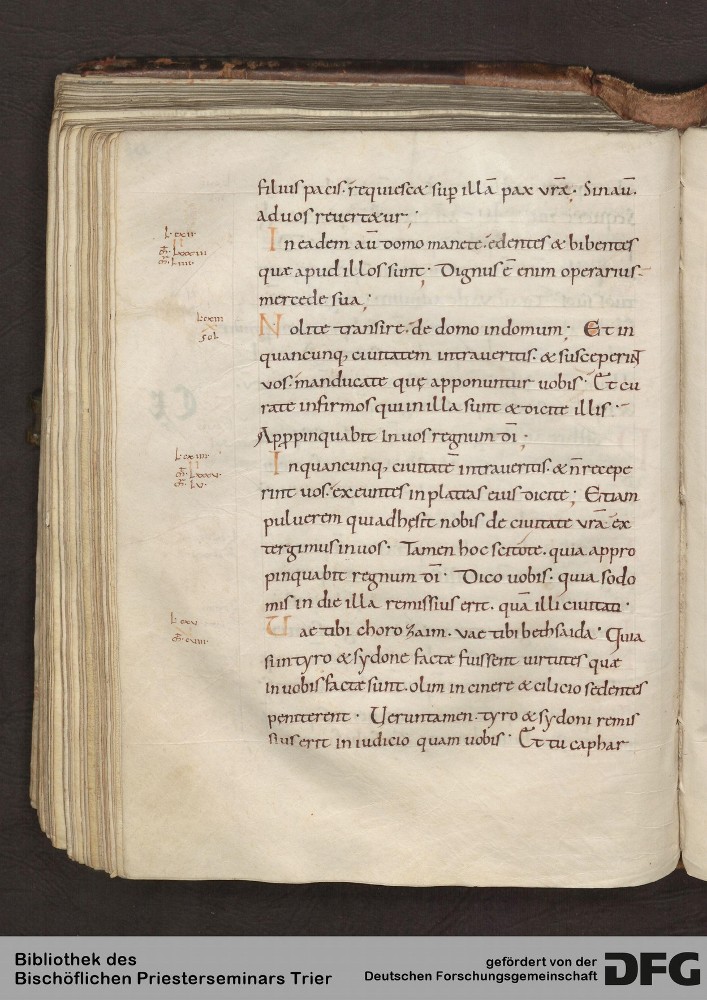 filius pacis. requiescet sup illā pax vr̄a. Sin aū.
ad uos reuertetur;
In eadem aū domo manete. edentes & bibentes
quæ apud illos sunt. Dignus ē enim operarius
mercede sua;
Nolite transire. de domo in domum; Et in
quancunq, ciuitatem intraueritis. & susceperint
vos. manducate quę apponuntur uobis. Et cu
rate infirmos qui in illa sunt & dicite illis.
Appropinquabit in uos regnum dī;
In quancunq, ciuitatē intraueritis. & n̄ recepe
rint uos. exeuntes in plateas eius dicite; Etiam
puluerem qui adhęsit nobis de ciuitate vr̄a ex
tergimus in uos. Tamen hoc scitote. quia appro
pinquabit regnum dī. Dico uobis. quia sodo
mis in die illa remissius erit. quā illi ciuitati.
Uae tibi chorozaim. vae tibi bethsaida. Quia
si in tyro & sydone factæ fuissent uirtutes quæ
in uobis factæ sunt. olim in cinere & cilicio sedentes
peniterent. Ueruntamen. tyro & sydoni remis
sius erit in iudicio quam uobis. Et tu caphar
Bibliothek des
Bischöflichen Priesterseminars Trier
gefördert von der
Deutschen Forschungsgemeinschaft
DFG